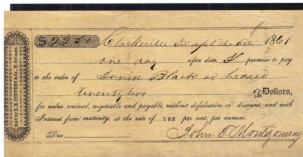 $22 50 Clarksville 1861
one day after date I promise to pay
to the order of David Black or bearer
twenty two Dollars,
for value received, negotiable and payable, without defalcation or discount, and with
Interest from maturity, at the rate of TEN per cent, per annum.
Due John C. Montgomery